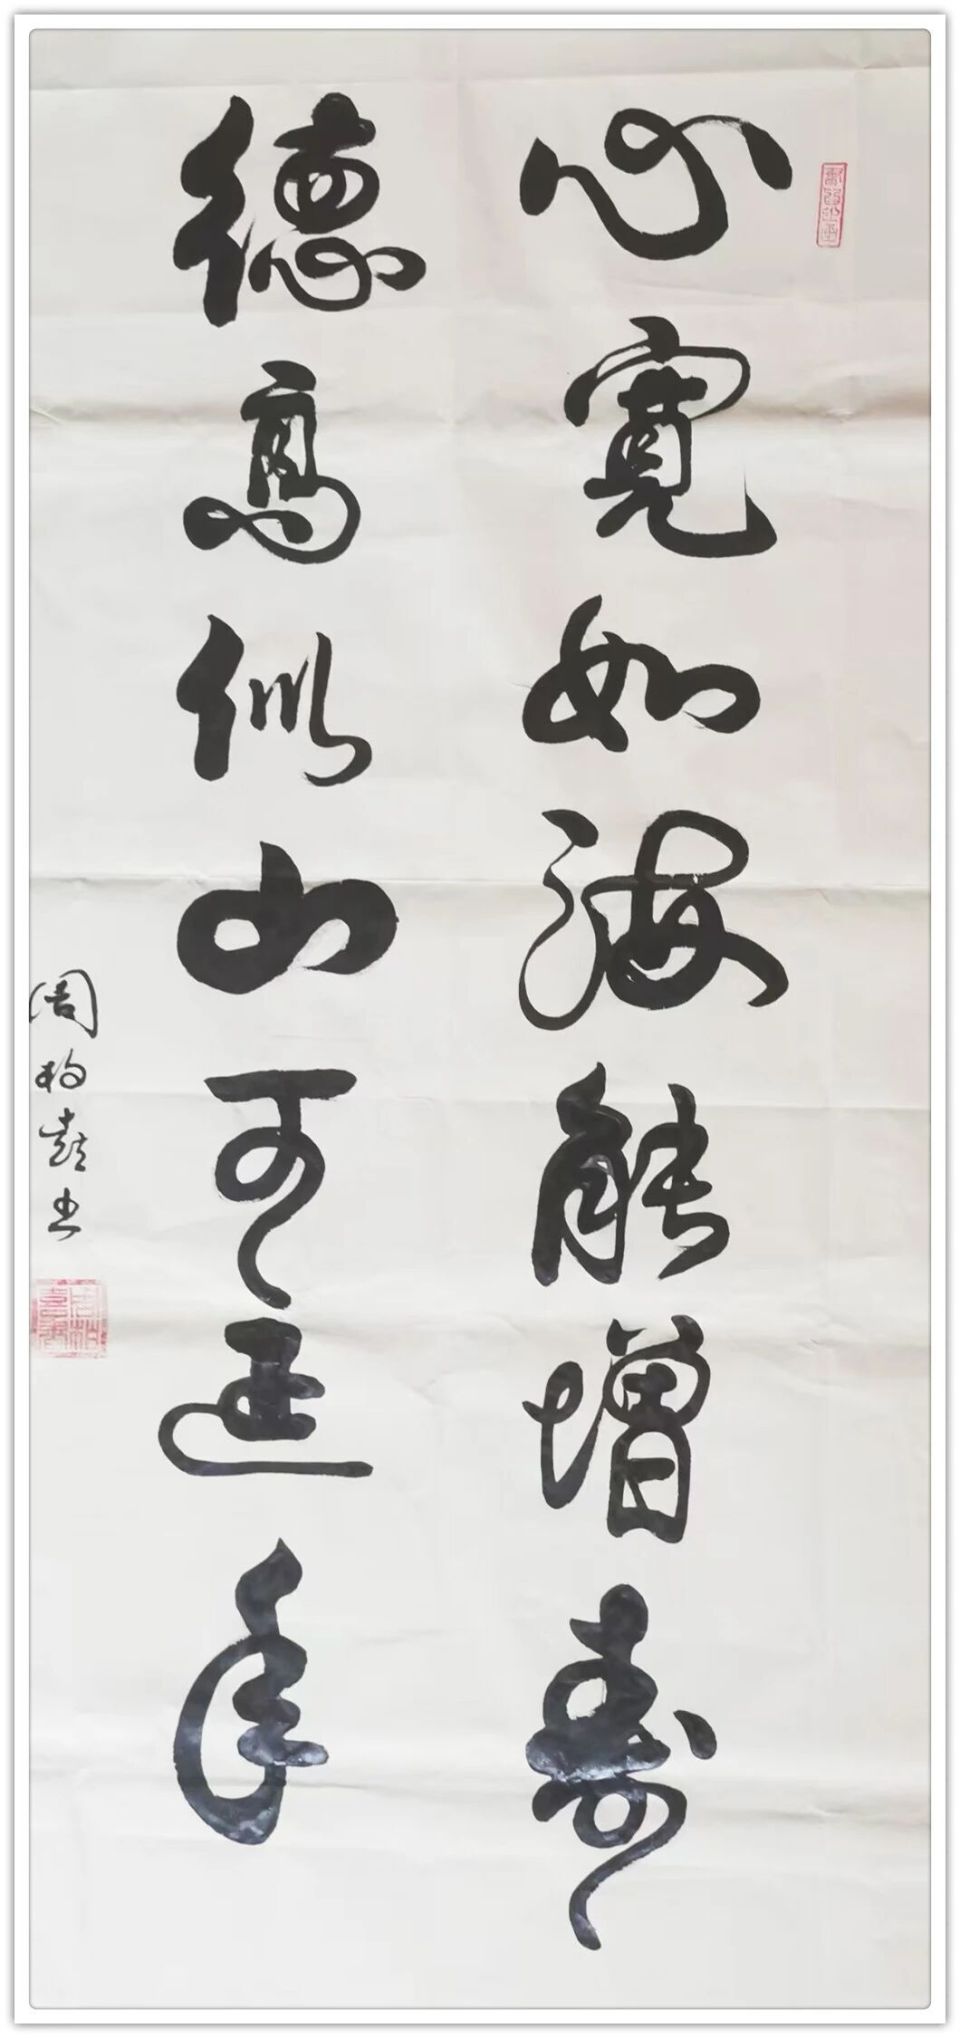 心寬如海能增壽
德高似山可延年
周柏 书